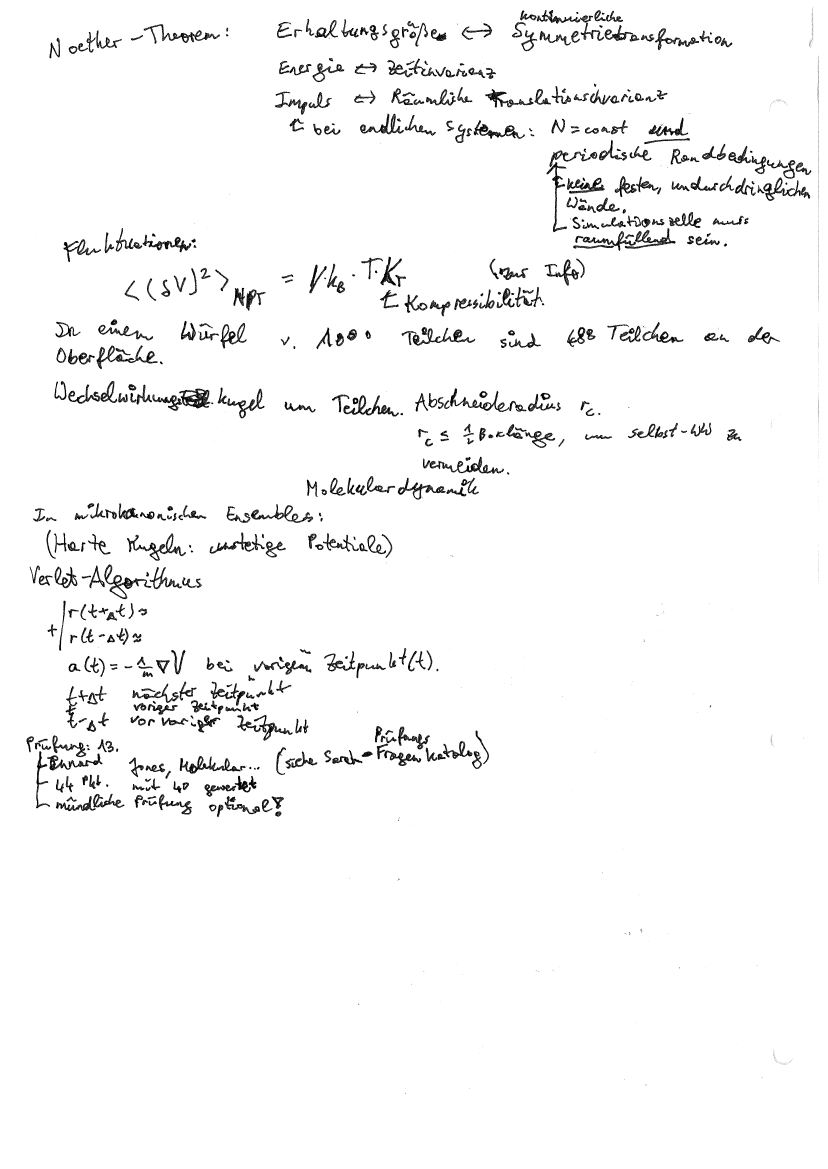 Noether-Theorem: Erhaltungsgröße ↔ kontinuierliche Symmetrietransformation
Energie ↔ Zeitinvarianz
Impuls ↔ Räumliche Translationsinvarianz
↑ bei endlichen Systemen: N = const und
periodische Randbedingungen
keine festen, undurchdringlichen
Wände.
Simulationszelle muss
raumfüllend sein.
Fluktuationen:
<(δV)²>_NPT = V·k_B·T·K_T (zur Info)
↑ Kompressibilität.
In einem Würfel v. 1000 Teilchen sind 488 Teilchen an der
Oberfläche.
Wechselwirkungskugel um Teilchen. Abschneideradius r_c.
r_c ≤ 1/2 Boxlänge, um selbst-WW zu
vermeiden.
Molekulardynamik
In mikrokanonischen Ensembles:
(Harte Kugeln: unstetige Potentiale)
Verlet-Algorithmus
r(t+Δt) ≈
+ r(t-Δt) ≈
a(t) = -1/m ∇V bei vorigem Zeitpunkt(t).
t+Δt nächster Zeitpunkt
t voriger Zeitpunkt
t-Δt vorvoriger Zeitpunkt
Prüfung: 13.
Jones, Molekular... (siehe Sarah-Prüfungs Fragenkatalog)
44 Pkt. mit 40 gewertet
mündliche Prüfung optional!